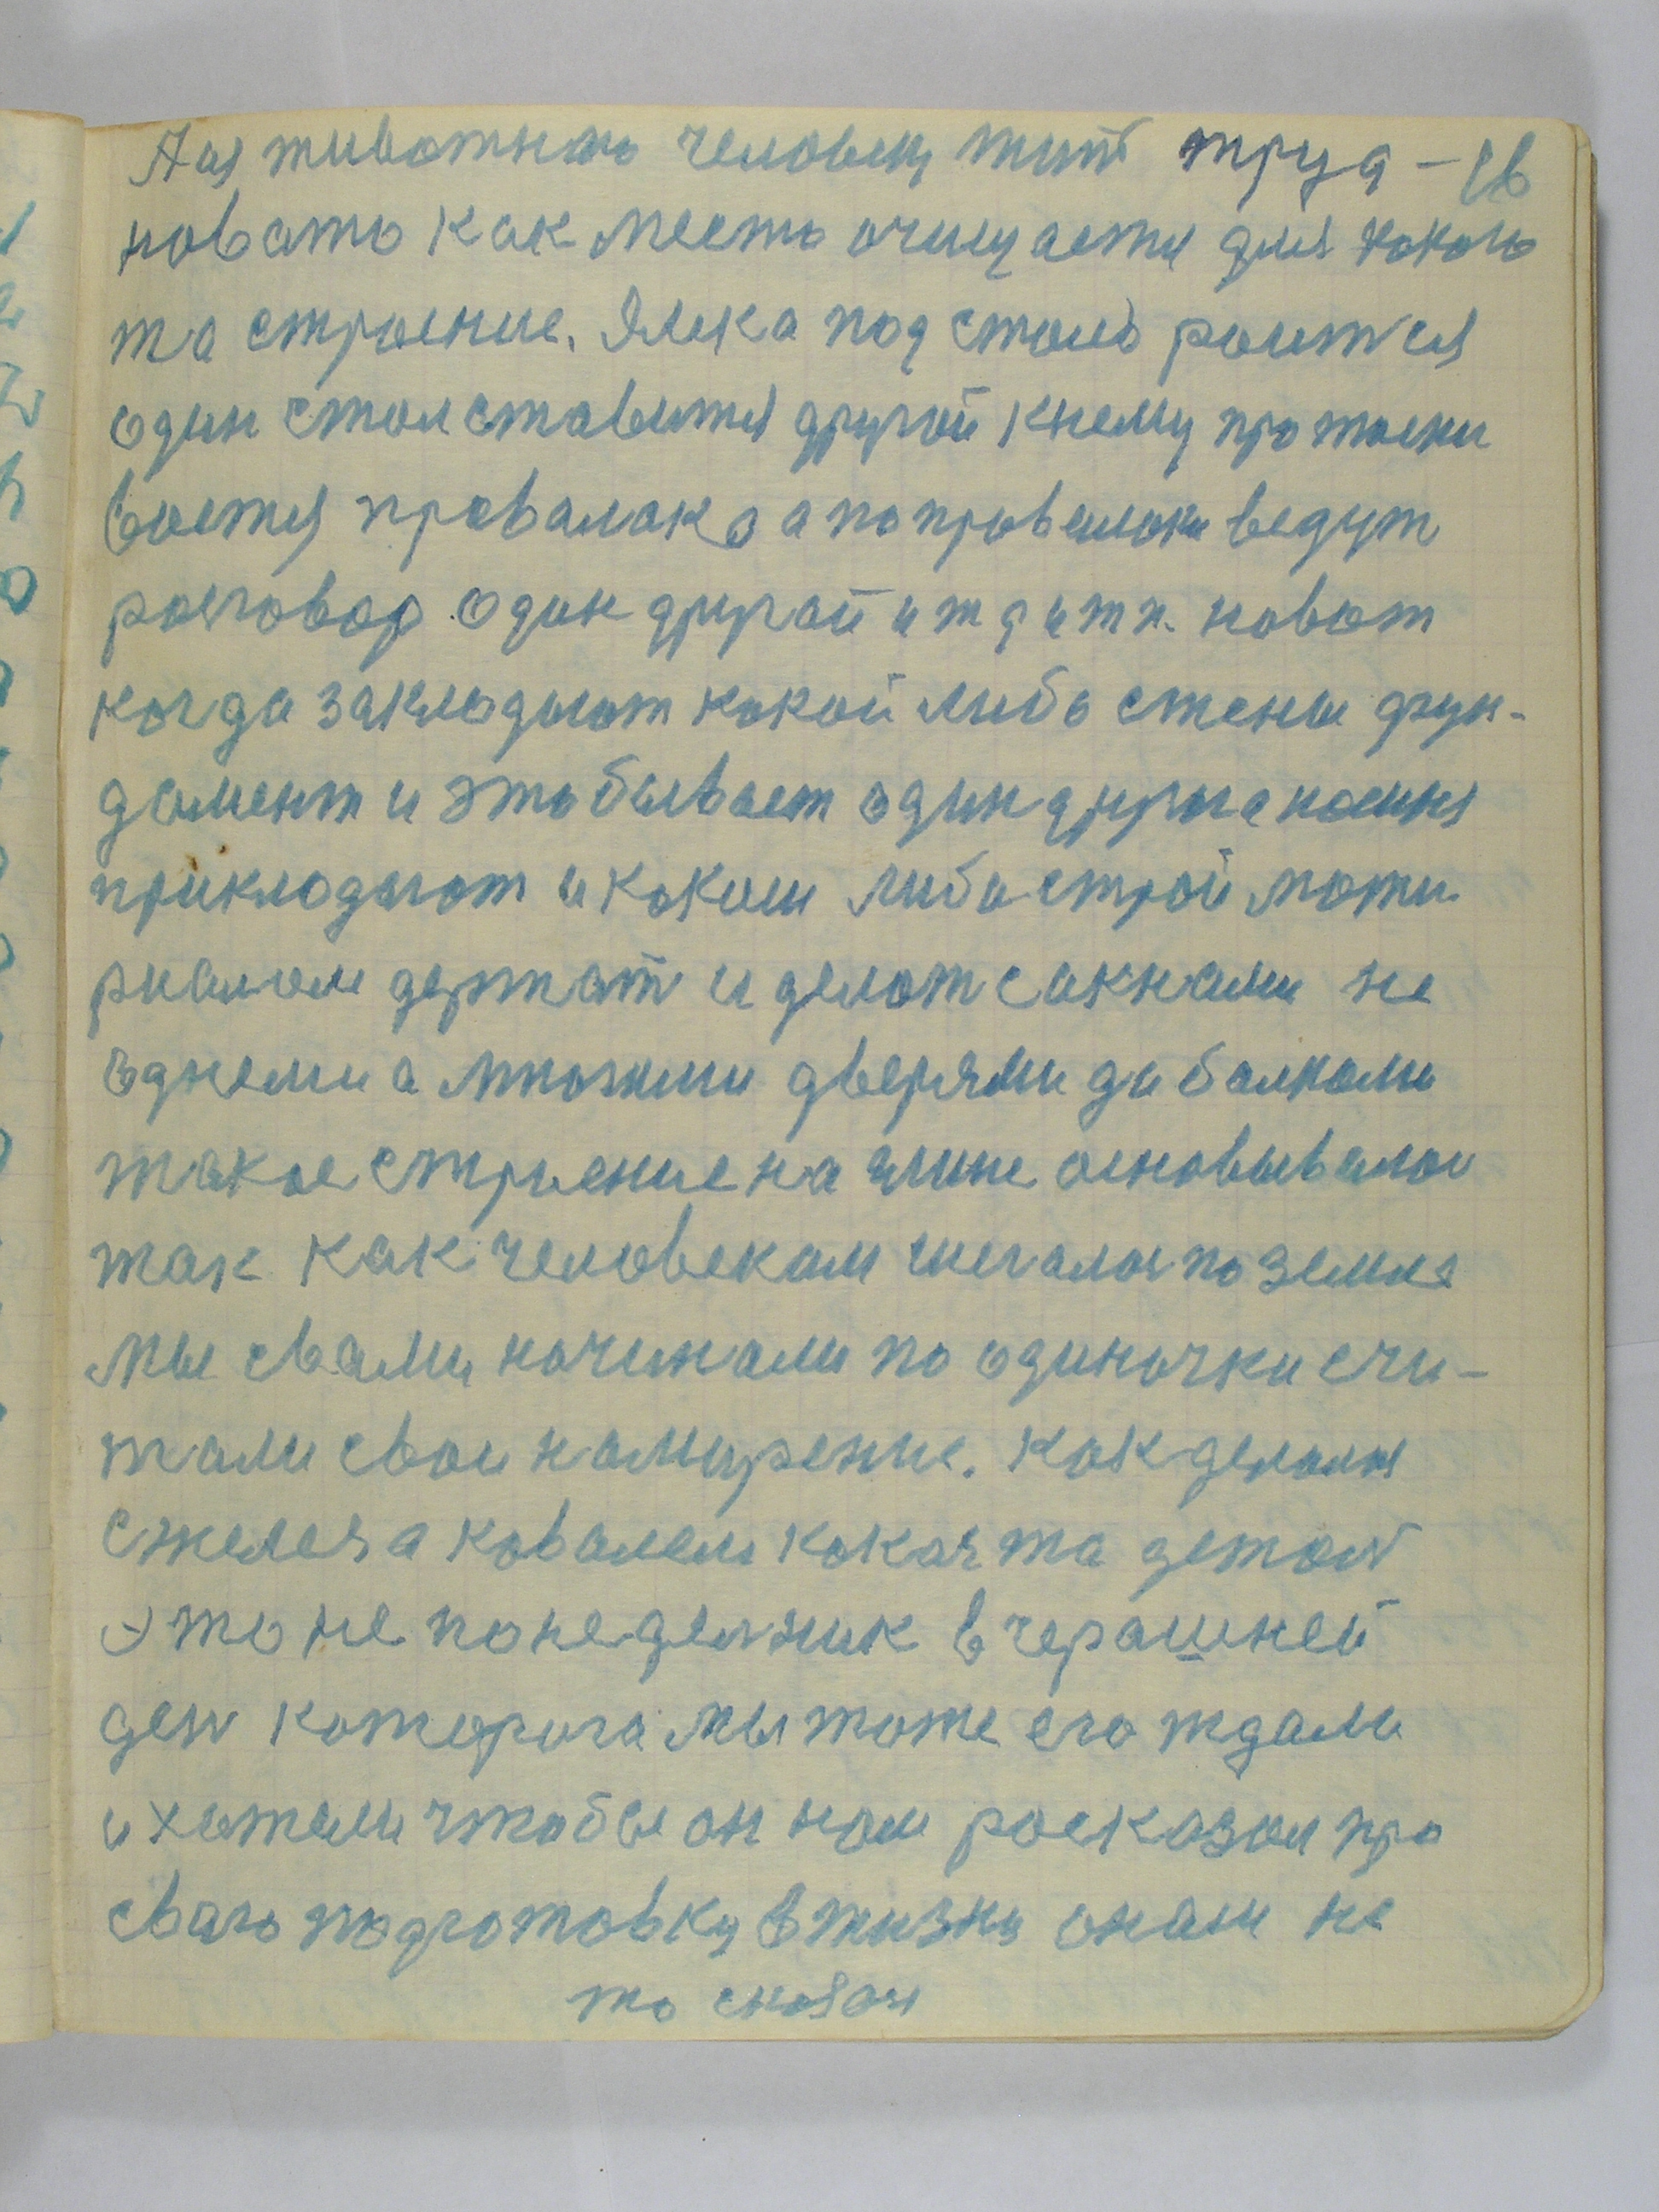 Для животного человеку жить труд - 26
новато как место очищается для какого
та строение. Ямка под столб роится
один стол ставится другой кнему протяги
вается провалака а попровалоки ведут
розговор один другой и т д и т п. новот
когда закладают какой либо стены фун-
дамент и это бывает один друга
прикладают и каким либо строй мати
риалом держать и делат сакнами не
аднеми а многими дверями да балками
такое строение на глине основывалос
так как человекам шегалос по земле
мы свами начинали по одиночки счи-
тали свои намирение. как делался
сжелеза ковалем каката детал
это не понеделник вчерашней
ден которога мы тоже его ждали
и хатели чтобы он нам росказал про
сваю подготовку вжизни онам не
то сказал